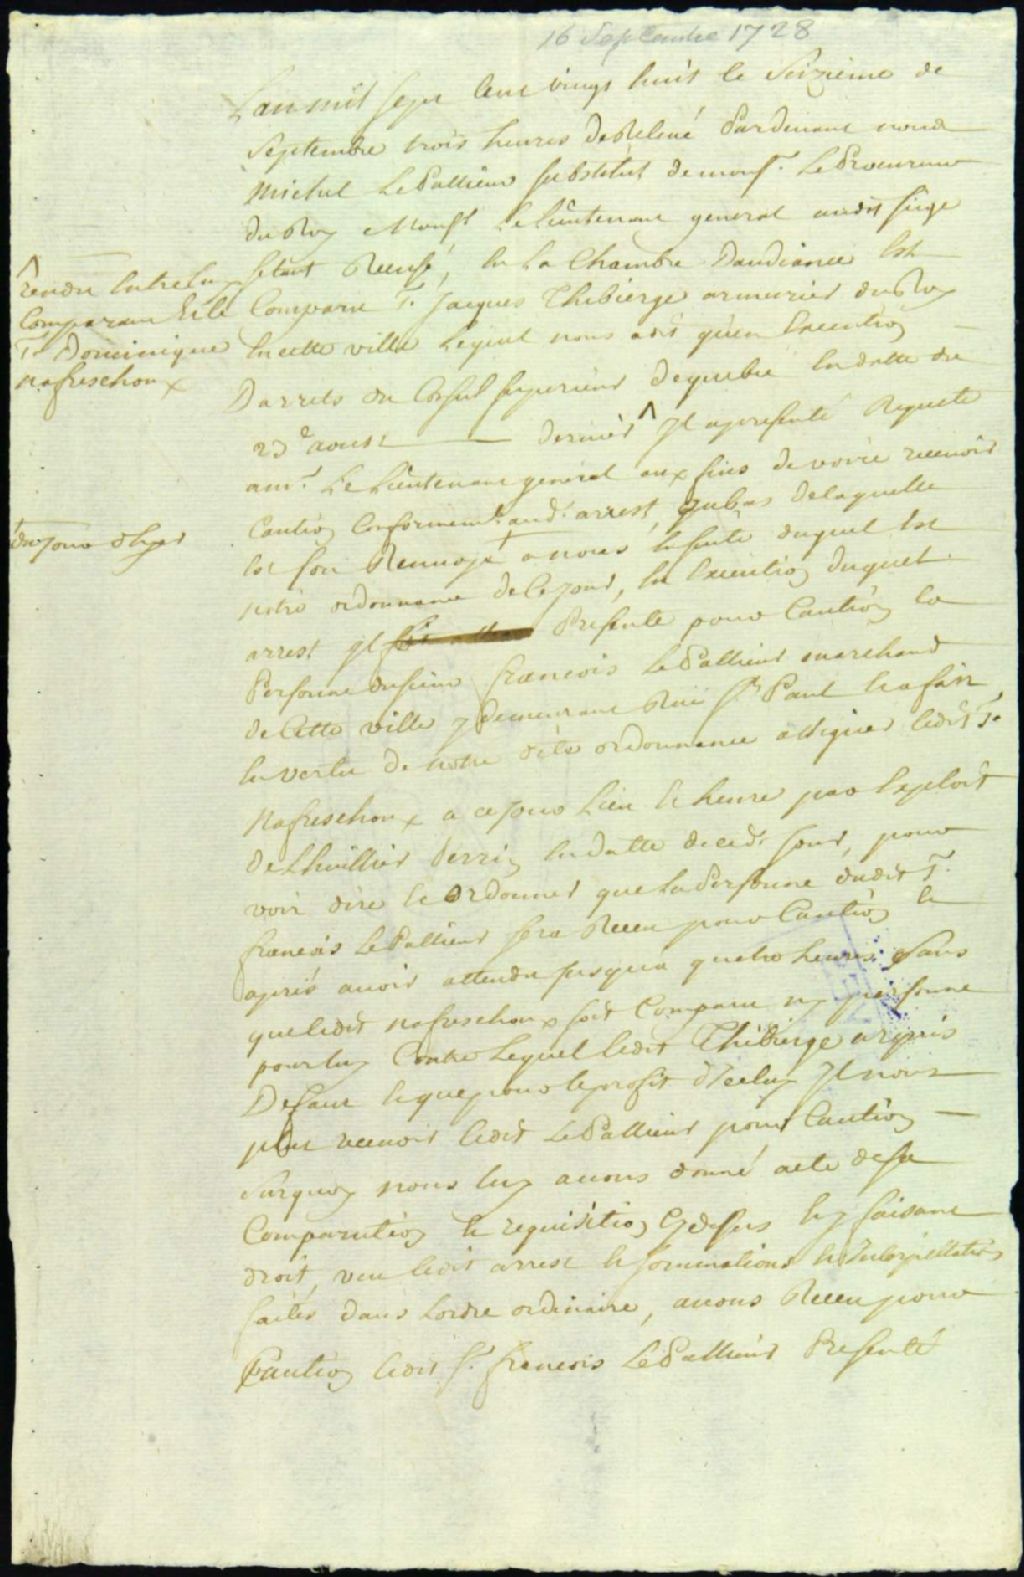 16 Septembre 1728
Lan mil sept Cent vingt huit le Seizieme de
Septembre trois heures de Relevé Pardevant nous
Michel LePallieur substitut de monsr. LeProcureur
du Roy Monsr. Le Lieutenant general audit siege
setant Recusé, en La Chambre Daudiance Est
Comparu Sr. Jacques Thibierge armurier du Roy
en cette ville Lequel nous a dit qu'en Execution
Darrets du Conseil superieur dequebec en datte du
23e aoust dernier ^ Il a presenté Requete
a mr. Le Lieutenant general aux fins de voire recevoir
Caution Conformemt. aud. arrest, au bas de laquelle
est son Renvoy + a nous ensuite duquel est
notre ordonnance de Ce jour, en Execution duquel
arrest il Presente pour Caution la
Personne du sieur francois LePallieur marchand
de Cette ville y demeurant Rüe St. Paul et a fait
en vertu de notre dite ordonnance assigner ledit Sr.
Nafrechoux a ce jour Lieu et heure par Exploit
de Lhuillier Perrin en datte de ced. jour, pour
voir dire et ordonner que la Personne dudit Sr.
francois LePallieur sera Receu pour Caution et
aprés avoir attendu jusqu'a quatre heures Sans
que ledit nafrechoux soit Comparu ny personne
pour luy Contre Lequel ledit Thibierge a requis
Defaut et que pour le profit d'Iceluy Il nous
plut recevoir ledit LePallieur pour Caution
Surquoy nous luy avons donné acte de sa
Comparution et requisition Cy dessus et y faisant
droit, veu ledit arrest les sommations et Interpellations
faites dans Lordre ordinaire, avons Receu pour
Caution ledit Sr. francois LePallieur Presenté
^ rendu Entre luy
Comparant Et le
Sr. Dominique
nafrechoux
+ du jour d'hyer